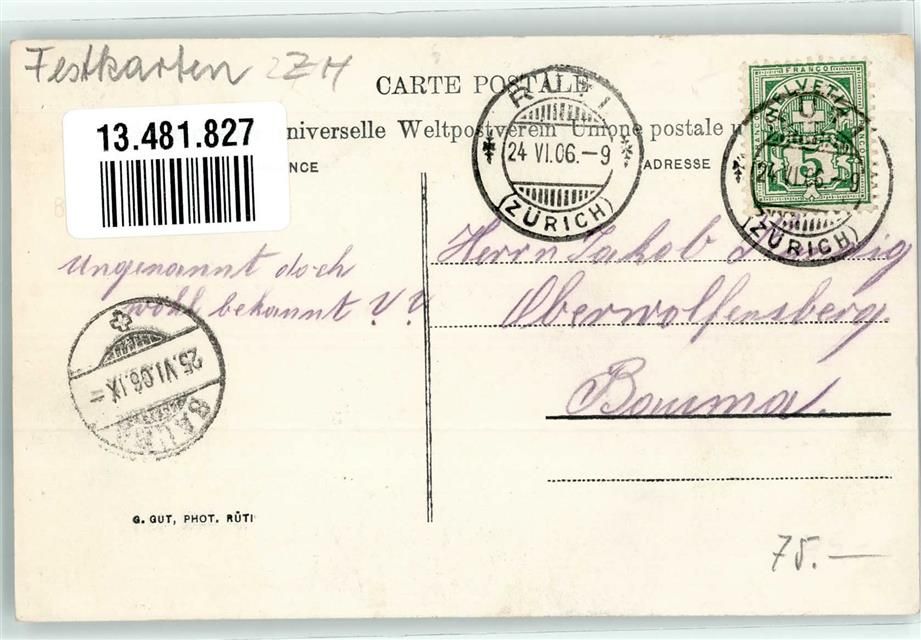 Festkarten ZH
CARTE POSTALE
13.481.827
niverselle Weltpostverein Unione postale u
NCE
ADRESSE
RÜTI
24 VI.06.–9
(ZÜRICH)
FRANCO
HELVETIA
5
24 VI.06.–9
(ZÜRICH)
Ungenannt doch
wohl bekannt V. V.
Herrn Jakob
Oberwolfensberg
Bauma.
25.VI.06.IX
BAUMA
G. GUT, PHOT. RÜTI
75.—